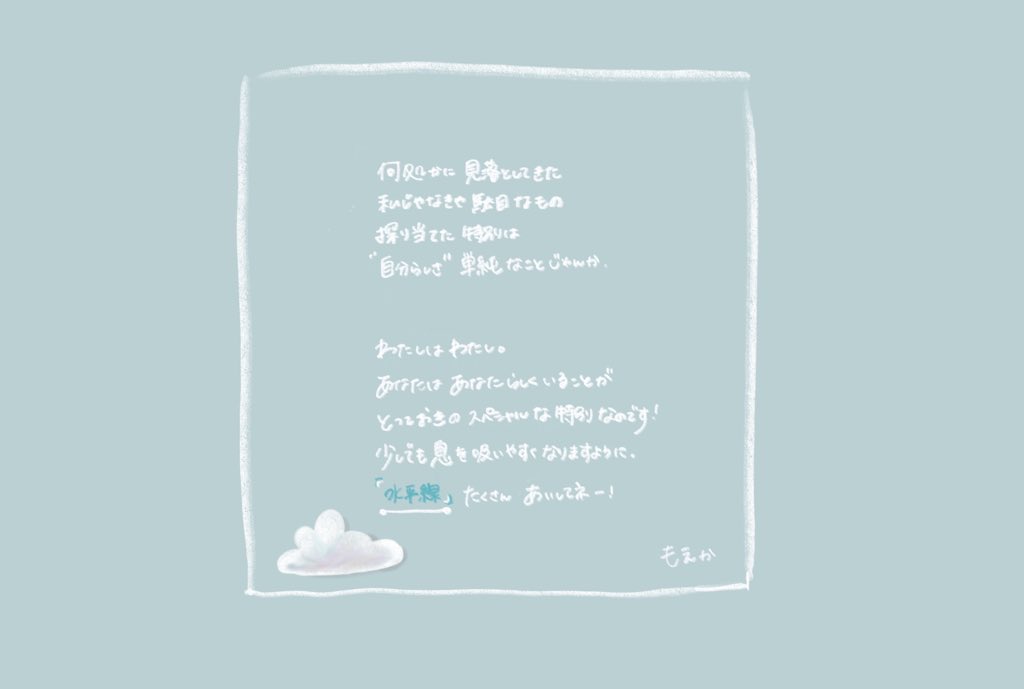 何処かに 見落としてきた
私じゃなきゃ 駄目なもの
探り当てた 特別は
"自分らしさ" 単純なことじゃんか.
わたしは わたし。
あなたは あなたらしくいることが
とっておきの スペシャルな 特別なのです!
少しでも 息を 吸いやすく なりますように.
「水平線」 たくさん あいしてネー!
もえか